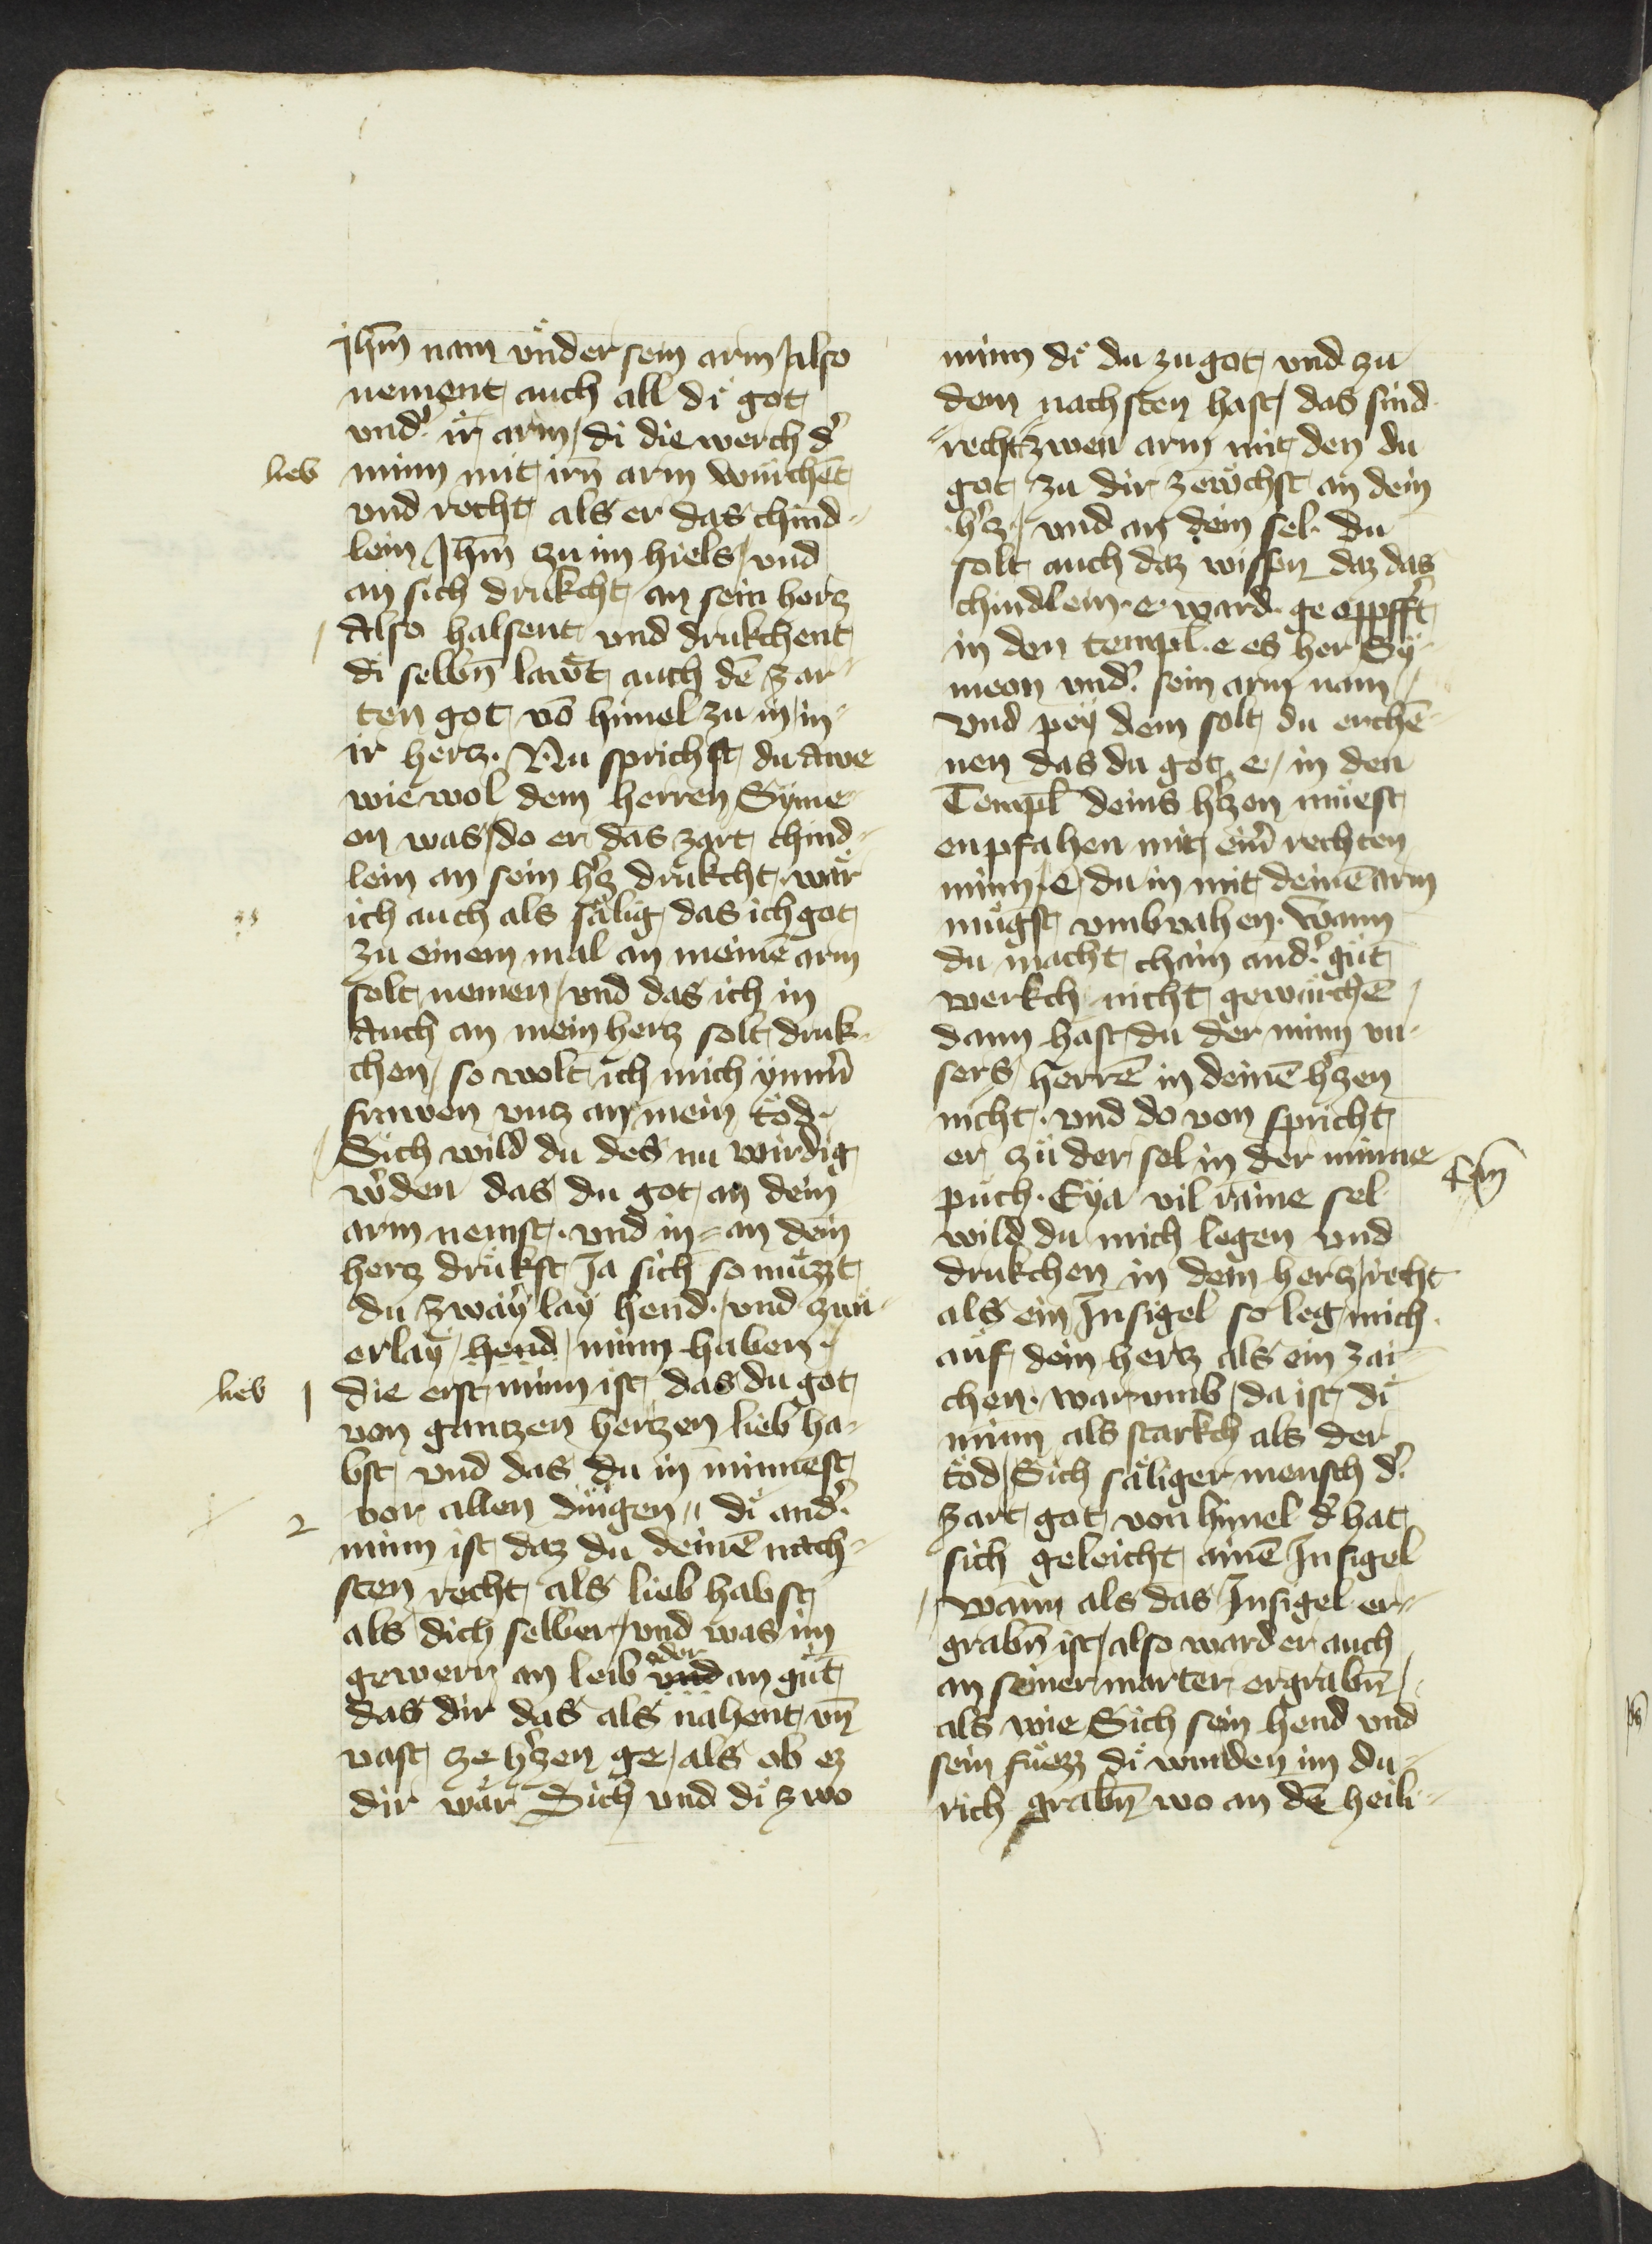 Jhm̄ nam vnder sein arm Also
nement auch all di got
vnd' ir arm / di die werch d'
lieb
minn mit irn̄ arm würchēt
vnd recht als er das chind⸗
lein Jhm̄ zu im hiels / vnd
an sich drukcht an sein hercz
Also halsent vnd drukchent
di selbn̄ lawt auch dē zar⸗
ten got vō himel zu in / in⸗
ir hercz. Nu sprichst du awe
wie wol dem herren Syme⸗
on was / do er das zart chind⸗
lein an sein h'cz drukcht wär
ich auch als sälig das ich got
zu einem mal an meinē arm
solt nemen / vnd das ich in
Auch an mein hercz solt druk⸗
chen / so wolt ich mich ymm̄
frawen vncz an mein tod.
Sich wild du des nu wirdig
w'den das du got an dein
arm nemst. vnd in⸗ an dein
hercz drukst Ja sich so müzzt
du zwaÿ laÿ hend. vnd zwi⸗
erlaÿ / hend / minn haben.
lieb 1
die erst minn ist das du got
von ganczen herczen lieb ha⸗
bst vnd das du in minnest
vor allen dingen / di and'.
2
minn ist daz du deinē näch⸗
sten recht als lieb habst
als dich selber / vnd was im
oder
gewerr an leib vnd an gūt
das dir das als nahent vn̄
vast ze h'czen ge / als ob ez
dir wär Sich vnd di zwo
minn di du zu got vnd zu
dem nachsten hast / das sind
recht zwen arm mit den du
got zu dir zewchst an dein
h'cz / vnd an dein sel. du
solt auch daz wissen daz das
chindlein. e. ward. geoppfft
in den templ. e es her Sÿ⸗
meon vnd' sein arm nam /
Vnd peÿ dem solt du erchē⸗
nen das du got e / in den
Templ deins h'czen müest
enpfahen mit ein' rechten
minn. e / du in mit deinē arm
mügst vmbvahen. Wann
du macht chain and' gūt
werkch nicht gewürchē /
dann hast du der minn vn⸗
sers herrē in deinē h'czen
nicht. vnd do von spricht
er zu der sel in der minne
puch. Eÿa vil raine sel
wild du mich legen vnd
drukchen in dein hercz / recht
als ein Jnsigel so leg mich
auf dein hercz als ein zai⸗
chen. warvmb / da ist di
minn als starkch als der
tod / Sich säliger mensch d'.
zart got von himel d' hat
sich geleicht ainē Jnsigel
Wann als das Jnsigel er⸗
grabn̄ ist / also ward er auch
an seiner marter ergrabn̄ /
als wie Sich sein hend vnd
sein füezz di wurden im du⸗
rich grabn̄ wo an dē heili⸗